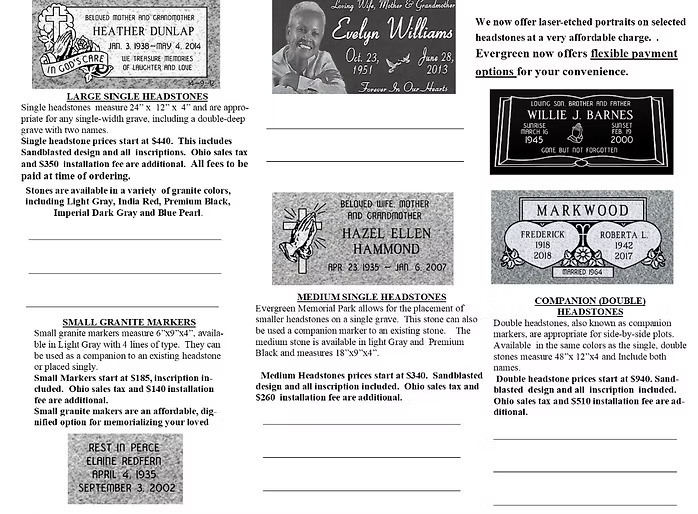 BELOVED MOTHER AND GRANDMOTHER
HEATHER DUNLAP
JAN. 3, 1938-MAY 4, 2014
WE TREASURE MEMORIES
OF LAUGHTER AND LOVE
IN GOD'S CARE
LARGE SINGLE HEADSTONES
Single headstones measure 24" x 12" x 4" and are appro-
priate for any single-width grave, including a double-deep
grave with two names.
Single headstone prices start at $440. This includes
Sandblasted design and all inscriptions. Ohio sales tax
and $350 installation fee are additional. All fees to be
paid at time of ordering.
Stones are available in a variety of granite colors,
including Light Gray, India Red, Premium Black,
Imperial Dark Gray and Blue Pearl.
SMALL GRANITE MARKERS
Small granite markers measure 6"x9"x4", availa-
ble in Light Gray with 4 lines of type. They can
be used as a companion to an existing headstone
or placed singly.
Small Markers start at $185, inscription in-
cluded. Ohio sales tax and $140 installation
fee are additional.
Small granite makers are an affordable, dig-
nified option for memorializing your loved
REST IN PEACE
ELAINE REDFERN
APRIL 4, 1935
SEPTEMBER 3, 2002
Loving Wife, Mother & Grandmother
Evelyn Williams
Oct. 23, 1951
June 28, 2013
Forever In Our Hearts
BELOVED WIFE, MOTHER
AND GRANDMOTHER
HAZEL ELLEN
HAMMOND
APR. 23, 1935 - JAN. 6, 2007
MEDIUM SINGLE HEADSTONES
Evergreen Memorial Park allows for the placement of
smaller headstones on a single grave. This stone can also
be used a companion marker to an existing stone. The
medium stone is available in light Gray and Premium
Black and measures 18"x9"x4".
Medium Headstones prices start at $340. Sandblasted
design and all inscription included. Ohio sales tax and
$260 installation fee are additional.
We now offer laser-etched portraits on selected
headstones at a very affordable charge. .
Evergreen now offers flexible payment
options for your convenience.
LOVING SON, BROTHER AND FATHER
WILLIE J. BARNES
SUNRISE
MARCH 16
1945
SUNSET
FEB. 19
2000
GONE BUT NOT FORGOTTEN
MARKWOOD
FREDERICK
1918
2018
ROBERTA L.
1942
2017
MARRIED 1964
COMPANION (DOUBLE)
HEADSTONES
Double headstones, also known as companion
markers, are appropriate for side-by-side plots.
Available in the same colors as the single, double
stones measure 48"x 12"x4 and Include both
names.
Double headstone prices start at $940. Sand-
blasted design and all inscription included.
Ohio sales tax and $510 installation fee are ad-
ditional.